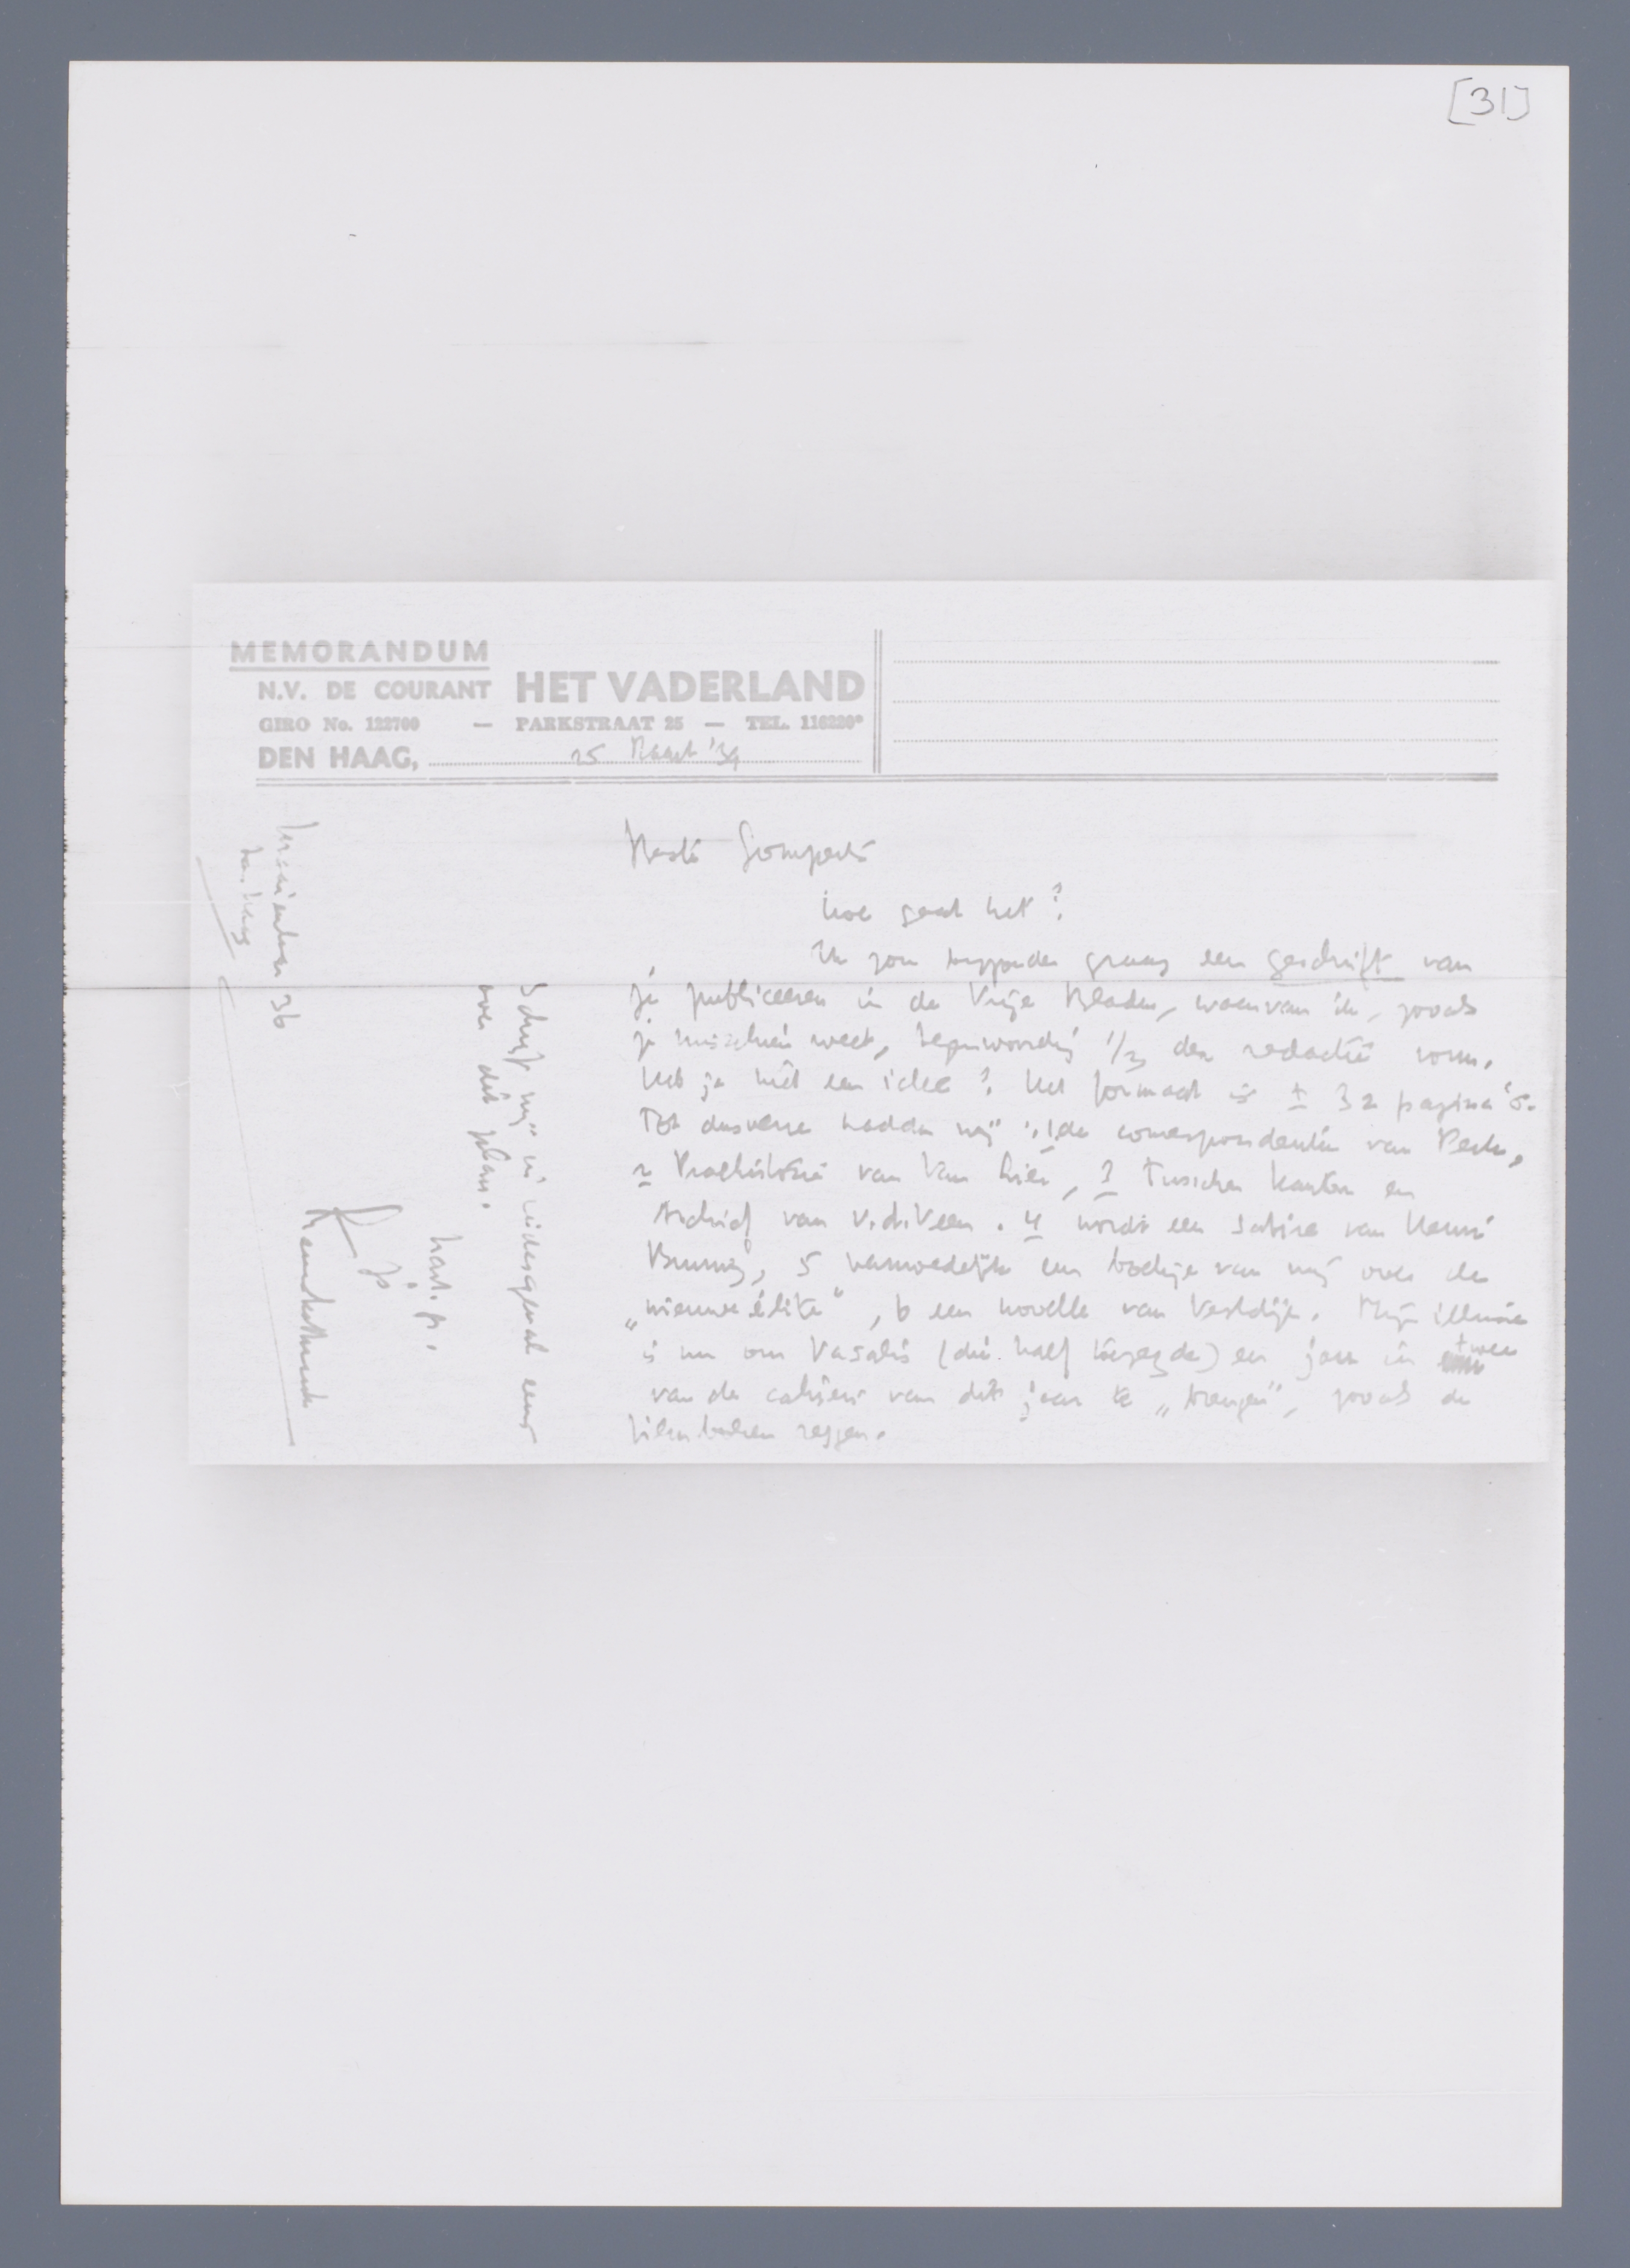 [31]
MEMORANDUM
N.V. DE COURANT HET VADERLAND
GIRO No. 122700 — PARKSTRAAT 25 — TEL. 116220*
DEN HAAG, 25 Maart '39
Beste Gomperts
hoe gaat het?
Ik zou bijzonder graag een geschrift van
je publiceeren in de Vrije Bladen, waarvan ik, zooals
je misschien weet, tegenwoordig 1/3 der redactie vorm.
Heb je niet een idee? Het formaat is ± 32 pagina's.
Tot dusverre hadden wij: 1 de correspondentie van Perk,
2 Prehistorie van Van Lier, 3 Tusschen Kanton en
Archief van v.d. Veen. 4 wordt een satire van Henri
Bruning, 5 vermoedelijk een boekje van mij over de
„nieuwe élite", 6 een novelle van Vestdijk. Mijn illusie
is nu om Vasalis (die half toezegde) en jou in twee
van de cahiers van dit jaar te „brengen", zooals de
filmboeken zeggen.
Schrijf mij in ieder geval eens
over dit plan.
hart. gr.
je
Menno ter Braak
36
Den Haag